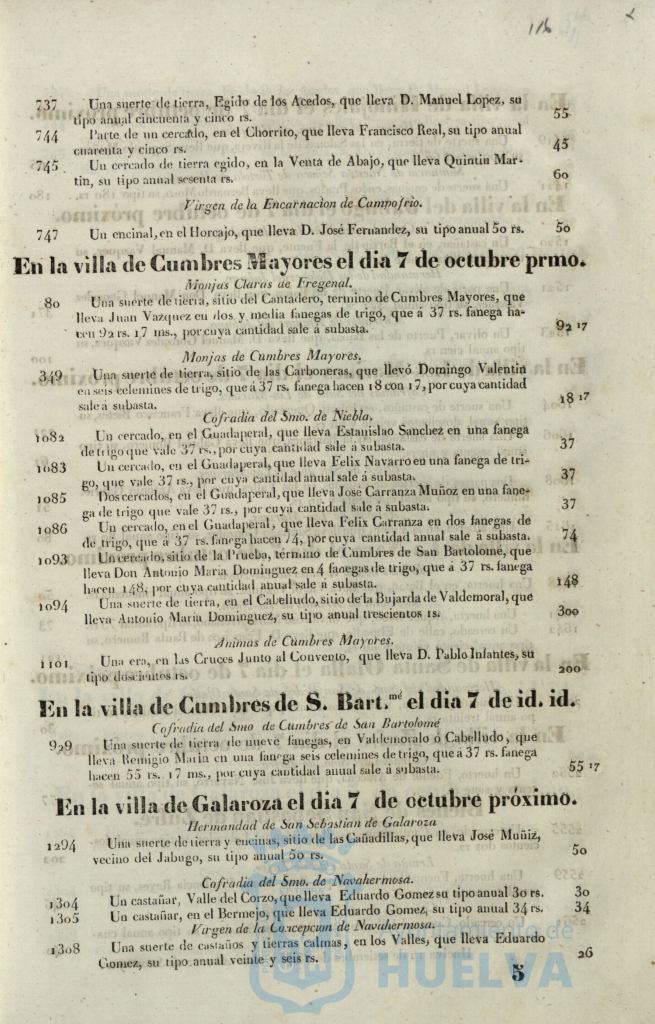 116
737 Una suerte de tierra, Egido de los Acedos, que lleva D. Manuel Lopez, su
tipo anual cincuenta y cinco rs. 55
744 Parte de un cercado, en el Chorrito, que lleva Francisco Real, su tipo anual
cuarenta y cinco rs. 45
745 Un cercado de tierra egido, en la Venta de Abajo, que lleva Quintin Mar-
tin, su tipo anual sesenta rs. 60
Virgen de la Encarnacion de Campofrio.
747 Un encinal, en el Horcajo, que lleva D. José Fernandez, su tipo anual 50 rs. 50
En la villa de Cumbres Mayores el dia 7 de octubre prmo.
Monjas Claras de Fregenal.
80 Una suerte de tierra, sitio del Cantadero, termino de Cumbres Mayores, que
lleva Juan Vazquez en dos y media fanegas de trigo, que á 37 rs. fanega ha-
cen 92 rs. 17 ms., por cuya cantidad sale á subasta. 92 17
Monjas de Cumbres Mayores.
349 Una suerte de tierra, sitio de las Carboneras, que llevó Domingo Valentin
en seis celemines de trigo, que á 37 rs. fanega hacen 18 con 17, por cuya cantidad
sale á subasta. 18 17
Cofradia del Smo. de Niebla.
1082 Un cercado, en el Guadaperal, que lleva Estanislao Sanchez en una fanega
de trigo que vale 37 rs., por cuya cantidad sale á subasta. 37
1083 Un cercado, en el Guadaperal, que lleva Felix Navarro en una fanega de tri-
go, que vale 37 rs., por cuya cantidad anual sale á subasta. 37
1085 Dos cercados, en el Guadaperal, que lleva José Carranza Muñoz en una fane-
ga de trigo que vale 37 rs., por cuya cantidad sale á subasta. 37
1086 Un cercado, en el Guadaperal, que lleva Felix Carranza en dos fanegas de
de trigo, que á 37 rs. fanega hacen 74, por cuya cantidad anual sale á subasta. 74
1093 Un cercado, sitio de la Prueba, término de Cumbres de San Bartolomé, que
lleva Don Antonio Maria Dominguez en 4 fanegas de trigo, que á 37 rs. fanega
hacen 148, por cuya cantidad anual sale á subasta. 148
1094 Una suerte de tierra, en el Cabelludo, sitio de la Bujarda de Valdemoral, que
lleva Antonio Maria Dominguez, su tipo anual trescientos rs. 300
Animas de Cumbres Mayores.
1101 Una era, en las Cruces Junto al Convento, que lleva D. Pablo Infantes, su
tipo doscientos rs. 200
En la villa de Cumbres de S. Bart.mé el dia 7 de id. id.
Cofradia del Smo de Cumbres de San Bartolomé
929 Una suerte de tierra de nueve fanegas, en Valdemoralo ó Cabelludo, que
lleva Remigio Marin en una fanega seis celemines de trigo, que á 37 rs. fanega
hacen 55 rs. 17 ms., por cuya cantidad anual sale á subasta. 55 17
En la villa de Galaroza el dia 7 de octubre próximo.
Hermandad de San Sebastian de Galaroza
1294 Una suerte de tierra y encinas, sitio de las Cañadillas, que lleva José Muñiz,
vecino del Jabugo, su tipo anual 50 rs. 50
Cofradia del Smo. de Navahermosa.
1304 Un castañar, Valle del Corzo, que lleva Eduardo Gomez su tipo anual 30 rs. 30
1305 Un castañar, en el Bermejo, que lleva Eduardo Gomez, su tipo anual 34 rs. 34
Virgen de la Concepcion de Navahermosa.
1308 Una suerte de castaños y tierras calmas, en los Valles, que lleva Eduardo
Gomez, su tipo anual veinte y seis rs. 26
5
Ayuntamiento de
HUELVA